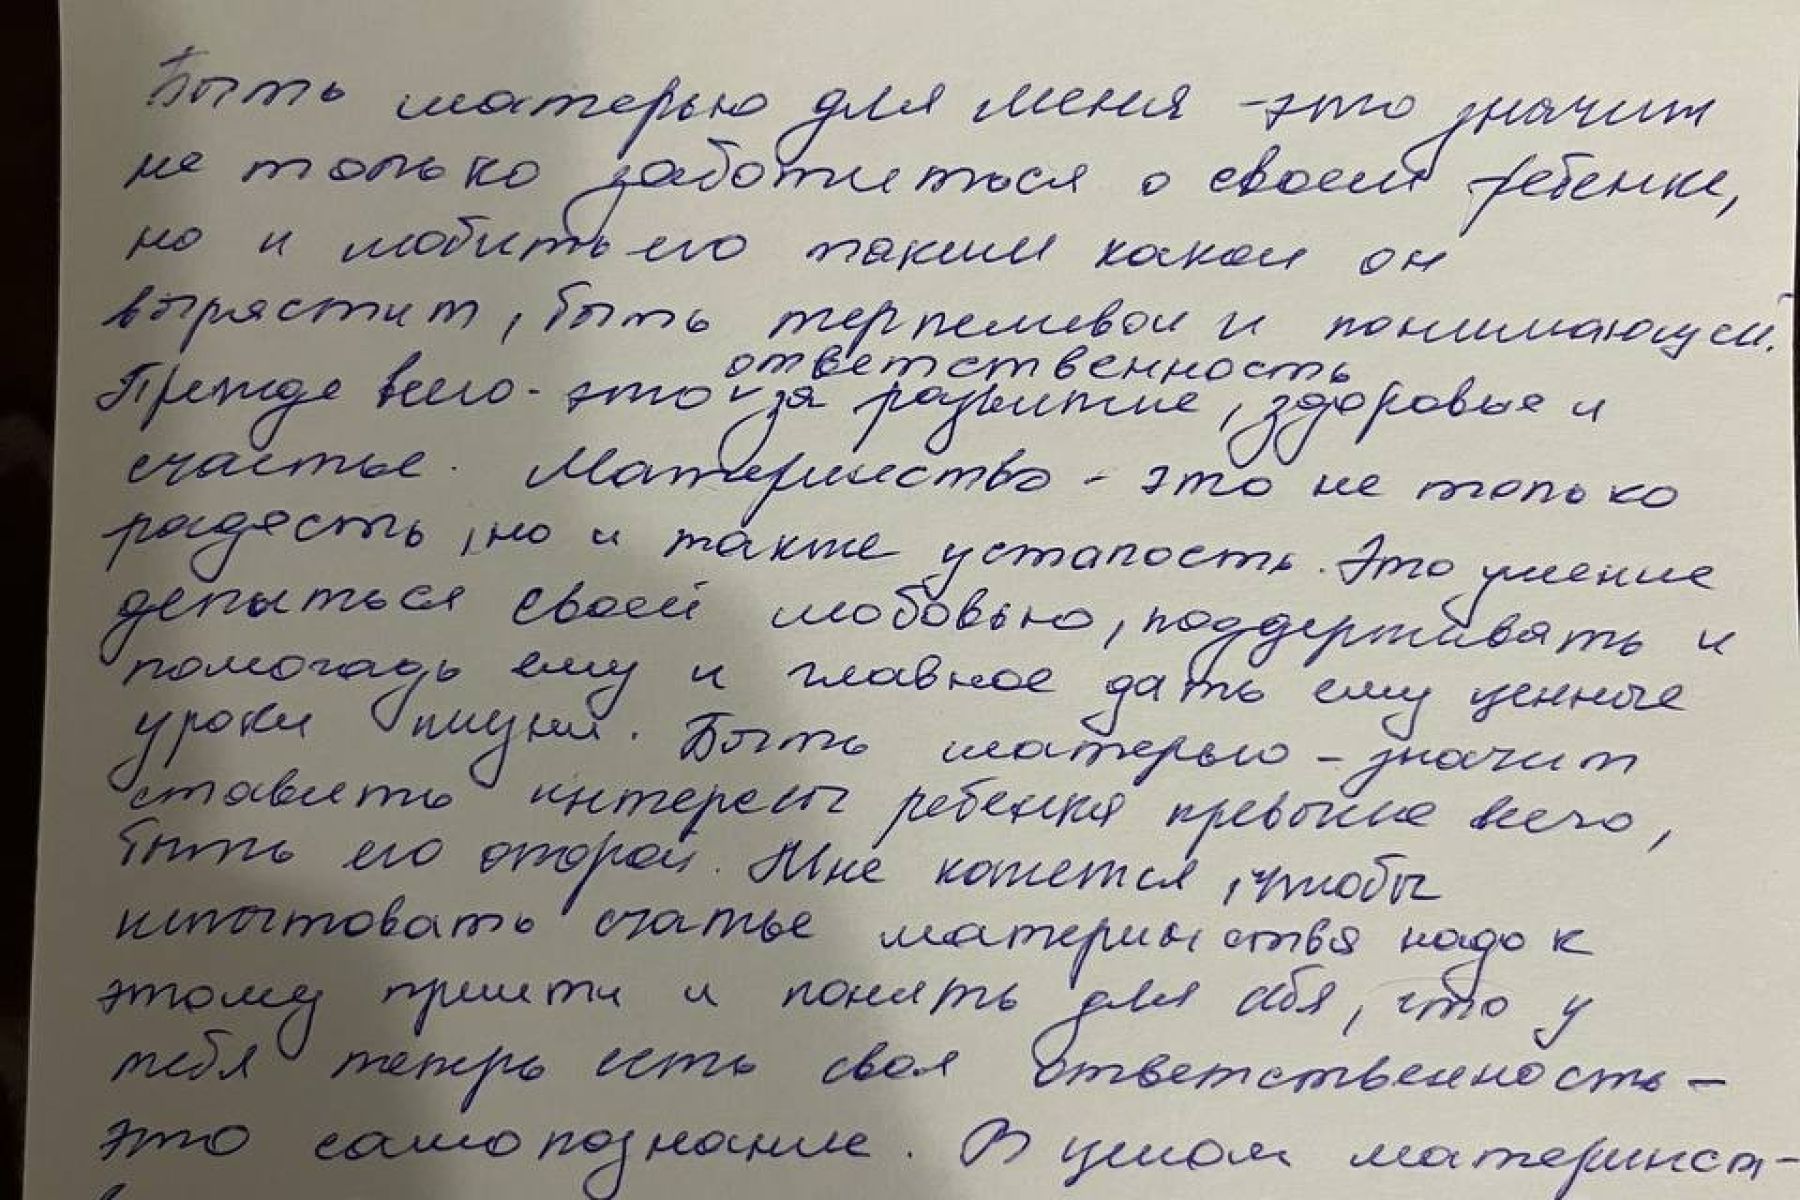 Быть матерью для меня - это значит
не только заботиться о своем ребенке,
но и любить его таким каким он
вырястит, быть терпеливой и понимающей.
ответственность
Прежде всего - это за развитие, здоровье и
счастье. Материнство - это не только
радость, но и также усталость. Это умение
делиться своей любовью, поддерживать и
помогадь ему и главное дать ему ценные
уроки жизни. Быть матерью - значит
ставить интересы ребенка превыше всего,
быть его опорой. Мне кажется, чтобы
испытовать счатье материнства надо к
этому прийти и понять для себя, что у
тебя теперь есть своя ответственность -
это самопознание. В целом материнст-